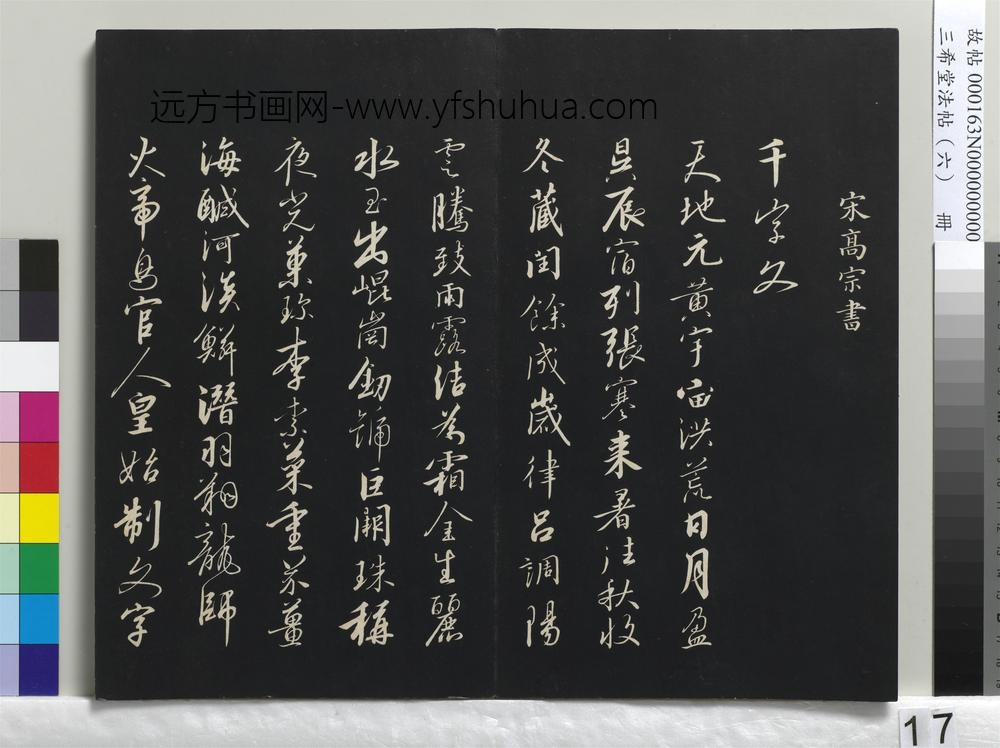 远方书画网-www.yfshuhua.com
故帖 000163N000000000
三希堂法帖（六） 册
宋高宗書
千字文
天地元黃宇宙洪荒日月盈
昃辰宿列張寒来暑往秋收
冬藏閏餘成歲律呂調陽
雲騰致雨露結為霜金生麗
水玉出崐崗劒號巨闕珠稱
夜光菓珎李柰菜重芥薑
海鹹河淡鱗潛羽翔龍師
火帝鳥官人皇始制文字
17